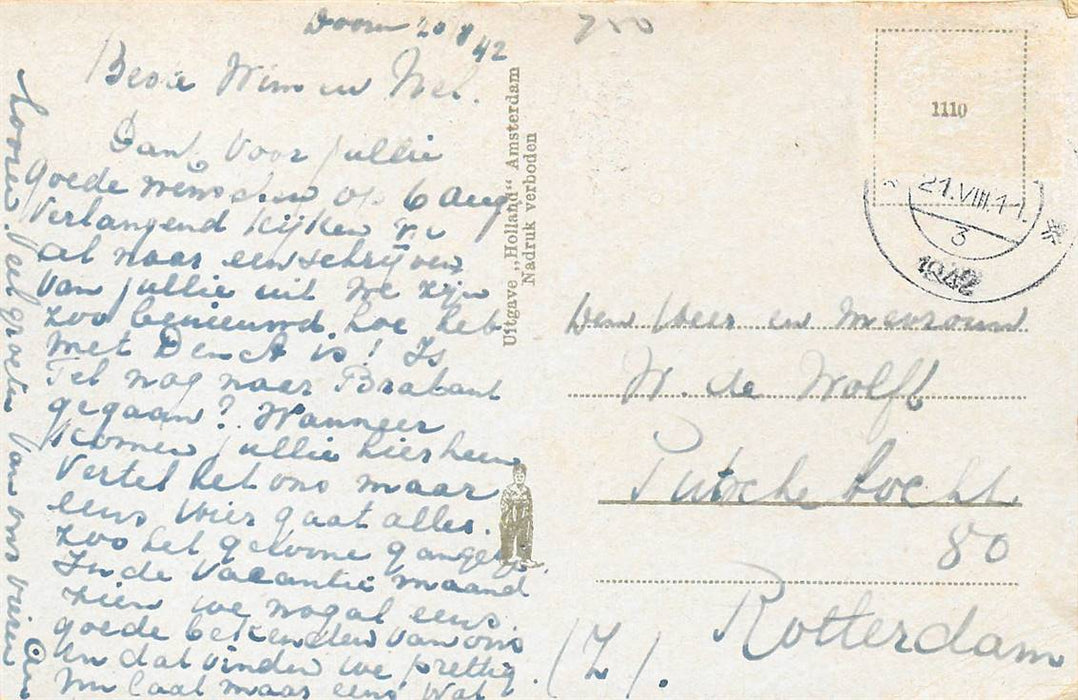 Doorn 20 8 42
Beste Wim en Nel.
Dank voor jullie
goede wenschen op 6 Aug
Verlangend kijken we
al naar een schrijven
van jullie uit we zijn
zoo benieuwd hoe het
met is! Is
Tel nog naar Brabant
gegaan? Wanneer
komen jullie hierheen
Vertel het ons maar
eens hier gaat alles
zoo het gewone gangetje
In de vacantie maand
zien we nogal eens
goede bekenden van ons
en dat vinden we prettig.
nu laat maar eens wat
hooren. Veel groeten van ons vieren
Uitgave „Holland" Amsterdam
Nadruk verboden
750
1110
21.VIII.11.
3
1942
Den Heer en Mevrouw
W. de Wolff
Putsche bocht
80
Rotterdam
(Z).